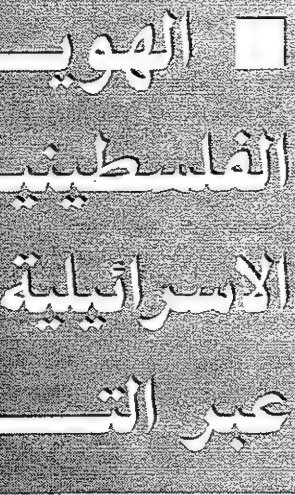 الهويـــ
الفلسطينيـ
الاسرائيلية
عبر التـــ